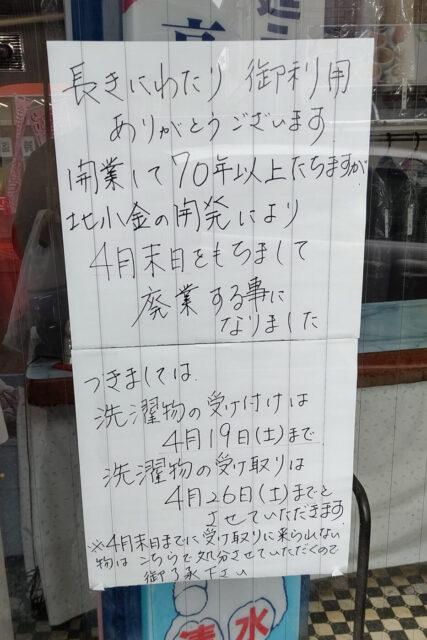 長きにわたり 御利用
ありがとうございます
開業して70年以上たちますが
北小金の開発により
4月末日をもちまして
廃業する事に
なりました
つきましては
洗濯物の受け付けは
4月19日(土)まで
洗濯物の受け取りは
4月26日(土)までと
させていただきます
※4月末日までに受け取りに来られない
物はこちらで処分させていただくので
御了承下さい
清水